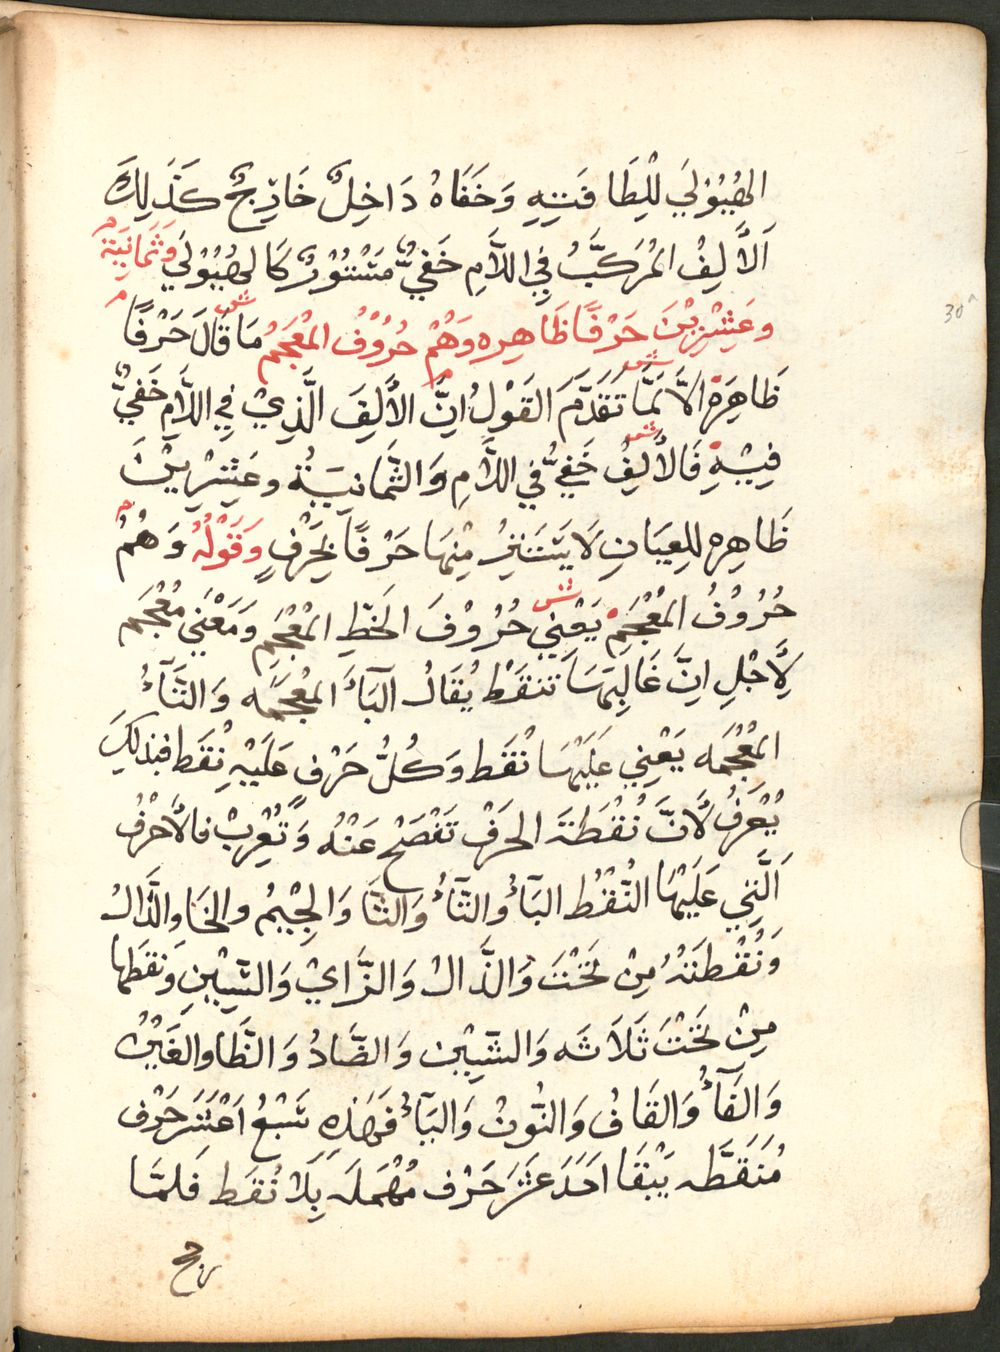 الهُيُوْلَي لِلْطَافَتِهِ وَخَفَاهُ دَاخِلٌ خَارِجٌ كَذَلِكَ
اَلأَلِفُ المُرَكَّبُ فِي اللَّامِ خَفِيٌّ مَسْتُوْرٌ كَالهُيُوْلَي وَثَمَانِيَة م
وعَشِرِيْنَ حَرْفًا ظَاهِره وَهُمْ حُرُوْفُ المُعْجَمْ مَا قَالَ حَرْفًا
ظَاهِرَة الاَّ لَمَّا تَقَدَّمَ القَوْلُ اِنَّ الأَلِفَ الَّذِيْ فِي اللَّامِ خَفِيٌّ
فِيْهِ فَالأَلِفُ خَفِيٌّ فِي اللَّامِ وَالثَّمانِيَةُ وعَشِرِيْنَ
ظَاهِره لِلعِيَانِ لَا يَسْتَتِرُ مِنْهَا حَرْفًا بِحَرْفٍ وَقَوْلُهُ وَهُمْ م
حُرُوْفُ المُعْجَمْ يَعْنِي حُرُوْفَ الخَطِّ المُعْجَمْ وَمَعْنَي مُعْجَمْ
لِأَجْلِ اِنَّ غَالِبهَا تَنقَطْ يُقَالُ البَاءُ المُعْجَمَه وَالتَّاءُ
المُعْجَمه يَعْنِي عَلَيْهَا نُقَط وَكُلُّ حَرْف عَلَيْهِ نُقَط فبذلِكَ
يُعْرَفُ لأَنَّ نُقْطَةَ الحَرْفْ تَفْصَحْ عَنْهُ وَتُعْرِبْ فالأَحْرُفُ
اَلَّتِي عَلَيْهَا النُّقَطُ البَاءُ والتَّاءُ وَالثَّا وَالجِيْمُ والخَا والدَّالُ
وَنُقْطَتُهُ مِنْ تَحْتَ وَالذَّالْ وَالزَّايْ وَالسِّيْنِ وَنقطها
مِنْ تَحْتَ ثَلَاثَه وَالشِّيْن وَالضَّادُ وَالظَّا والغَيْنُ
وَالفَاءُ وَالقَافُ وَالنُّونْ وَاليَاءُ فَهَذِهِ سَبْعُ اَعْشَر حَرْف
مُنَقَّطَه يَبْقَا اَحَدَ عَشَرَ حَرْف مُهْمَلَه بِلَا نُقَط فَلمَّا